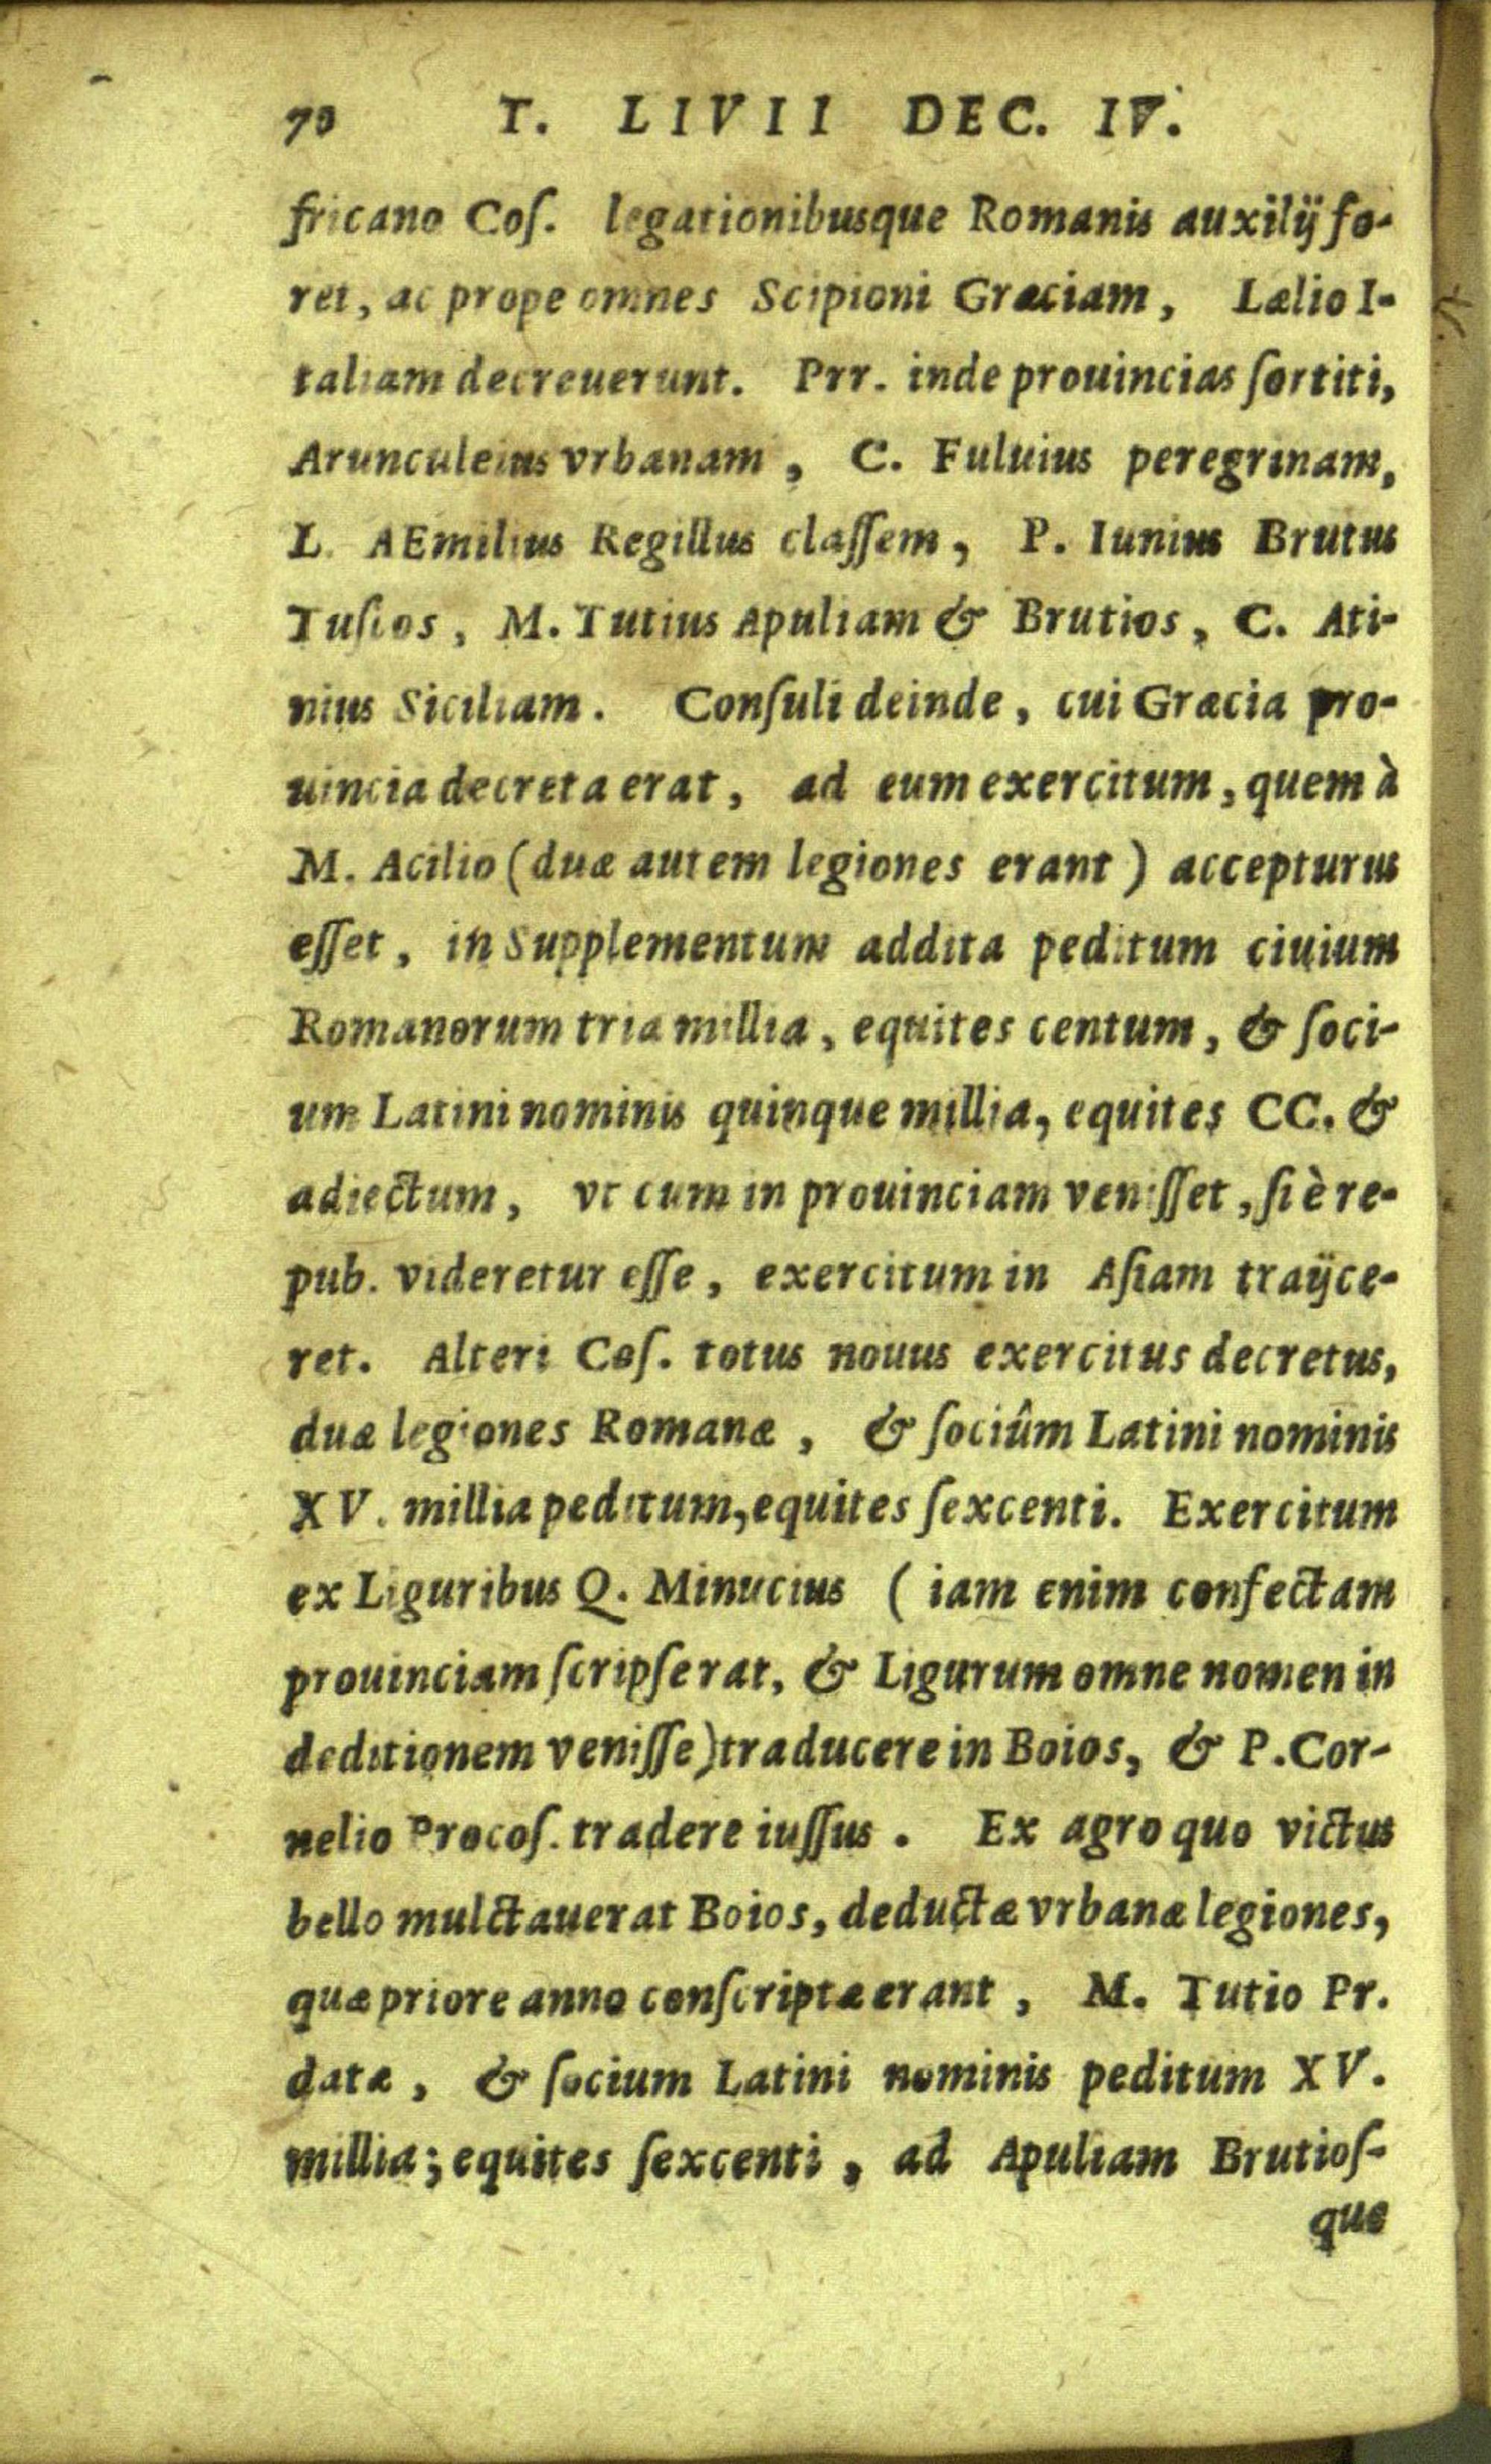 70 T. LIVII DEC. IV.
fricano Coſ. legationibusque Romanis auxilij fo-
ret, ac prope omnes Scipioni Græciam, Lælio I-
taliam decreuerunt. Prr. inde prouincias ſortiti,
Arunculeius vrbanam, C. Fuluius peregrinam,
L. AEmilius Regillus claſſem, P. Iunius Brutus
Tuſcos, M. Tutius Apuliam & Brutios, C. Ati-
nius Siciliam. Conſuli deinde, cui Græcia pro-
uincia decreta erat, ad eum exercitum, quem à
M. Acilio (duæ autem legiones erant) accepturus
eſſet, in Supplementum addita peditum ciuium
Romanorum tria millia, equites centum, & ſoci-
um Latini nominis quinque millia, equites CC. &
adiectum, vt cum in prouinciam veniſſet, ſi è re-
pub. videretur eſſe, exercitum in Aſiam traijce-
ret. Alteri Coſ. totus nouus exercitus decretus,
duæ legiones Romanæ, & ſociûm Latini nominis
XV. millia peditum, equites ſexcenti. Exercitum
ex Liguribus Q. Minucius (iam enim confectam
prouinciam ſcripſerat, & Ligurum omne nomen in
deditionem veniſſe) traducere in Boios, & P. Cor-
nelio Procoſ. tradere iuſſus. Ex agro quo victus
bello mulctauerat Boios, deductæ vrbanæ legiones,
quæ priore anno conſcriptæ erant, M. Tutio Pr.
datæ, & ſocium Latini nominis peditum XV.
millia; equites ſexcenti, ad Apuliam Brutioſ-
que